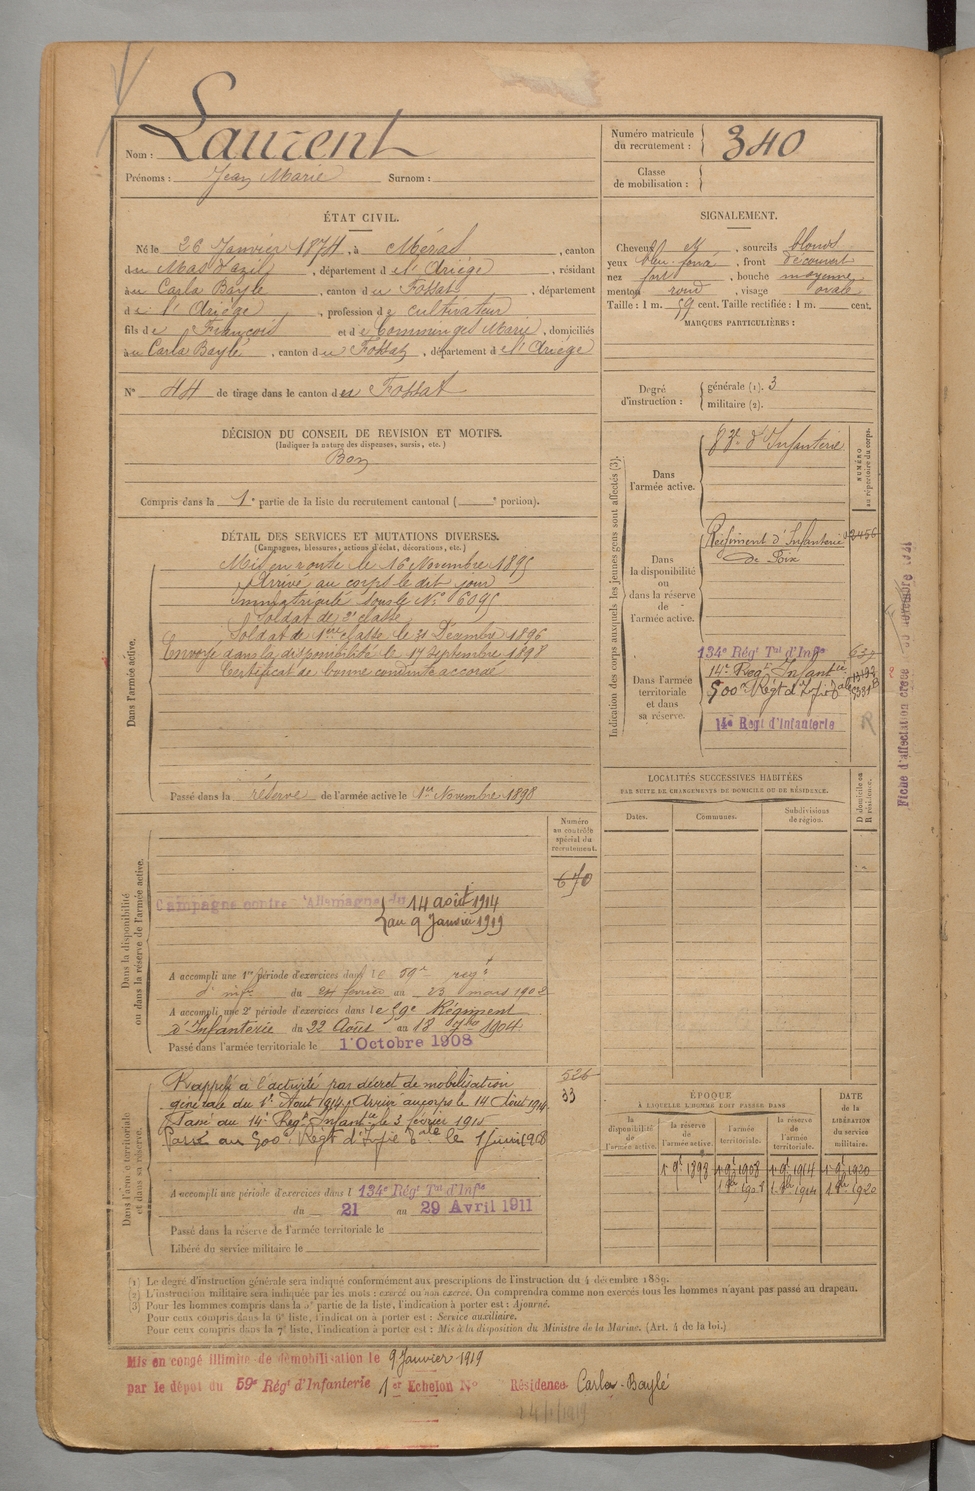 Laurent
Nom :
Prénoms : Jean Marie Surnom :
Numéro matricule du recrutement : 340
Classe de mobilisation :
ÉTAT CIVIL.
Né le 26 Janvier 1874, à Méras, canton
du Mas d'Azil, département de l'Ariège, résidant
au Carla Bayle, canton du Fossat, département
de l'Ariège, profession de cultivateur
fils de François et de Commenge Marie, domiciliés
au Carla Bayle, canton du Fossat, département de l'Ariège
N° 44 de tirage dans le canton du Fossat
DÉCISION DU CONSEIL DE REVISION ET MOTIFS.
(Indiquer la nature des dispenses, sursis, etc.)
Bon
Compris dans la 1e partie de la liste du recrutement cantonal ( e portion).
DÉTAIL DES SERVICES ET MUTATIONS DIVERSES.
(Campagnes, blessures, actions d'éclat, décorations, etc.)
Dans l'armée active.
Mis en route le 16 Novembre 1895
Arrivé au corps le dit jour
Immatriculé sous le N° 6095
Soldat de 2e classe
Soldat de 1ère classe le 31 Décembre 1896
Envoyé dans la disponibilité le 17 Septembre 1898
Certificat de bonne conduite accordé
Passé dans la réserve de l'armée active le 1er Novembre 1898
Dans la disponibilité
ou dans la réserve de l'armée active.
Numéro
au contrôle
spécial du
recrutement.
670
Campagne contre l'Allemagne du 14 août 1914
au 9 Janvier 1919
A accompli une 1re période d'exercices dans le 59e regt
d'infie du 24 février au 23 mars 1902
A accompli une 2e période d'exercices dans le 59e Régiment
d'Infanterie du 22 Août au 18 7bre 1904
Passé dans l'armée territoriale le 1 Octobre 1908
Dans l'armée territoriale
et dans sa réserve.
526
33
Rappelé à l'activité par décret de mobilisation
générale du 1r Aout 1914, Arrivé au corps le 14 Août 1914
Passé au 14e Regt Infantrie le 3 février 1915
Passé au 500e Régt d'Infie Tale le 1 Juin 1918
A accompli une période d'exercices dans l 134e Régt Tal d'Infie
du 21 au 29 Avril 1911
Passé dans la réserve de l'armée territoriale le
Libéré du service militaire le
SIGNALEMENT.
Cheveux et, sourcils blonds
yeux bleu foncé, front découvert
nez fort, bouche moyenne
menton rond, visage ovale
Taille : 1 m. 59 cent. Taille rectifiée : 1 m. cent.
MARQUES PARTICULIÈRES :
Degré d'instruction : générale (1). 3
militaire (2).
Indication des corps auxquels les jeunes gens sont affectés (3).
NUMÉRO
au répertoire du corps.
Dans
l'armée active.
83e d'Infanterie
Dans
la disponibilité
ou
dans la réserve
de
l'armée active.
Régiment d'Infanterie
de Foix
Dans l'armée
territoriale
et dans
sa réserve.
134e Régt Tal d'Infie
14e Regt Infantrie
500e Régt d'Infie Tale
14e Regt d'Infanterie
R
LOCALITÉS SUCCESSIVES HABITÉES
PAR SUITE DE CHANGEMENTS DE DOMICILE OU DE RÉSIDENCE.
Dates. Communes. Subdivisions de région.
D domicile ou
R résidence.
ÉPOQUE
À LAQUELLE L'HOMME DOIT PASSER DANS
DATE
de la
LIBÉRATION
du service
militaire.
la disponibilité de l'armée active. la réserve de l'armée active. l'armée territoriale. la réserve de l'armée territoriale.
1r 9bre 1898 1r 9bre 1908 1r 9bre 1914 1r 9bre 1920
(1) Le degré d'instruction générale sera indiqué conformément aux prescriptions de l'instruction du 4 décembre 1889.
(2) L'instruction militaire sera indiquée par les mots : exercé ou non exercé. On comprendra comme non exercés tous les hommes n'ayant pas passé au drapeau.
(3) Pour les hommes compris dans la 5e partie de la liste, l'indication à porter est : Ajourné.
Pour ceux compris dans la 6e liste, l'indication à porter est : Service auxiliaire.
Pour ceux compris dans la 7e liste, l'indication à porter est : Mis à la disposition du Ministre de la Marine. (Art. 4 de la loi.)
Mis en congé illimité de démobilisation le 9 Janvier 1919
par le dépôt du 59e Régt d'Infanterie 1er Echelon N° Résidence Carla-Baylé